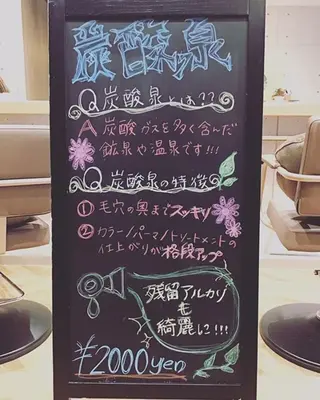 炭酸泉
Q 炭酸泉とは??
A 炭酸ガスを多く含んだ
鉱泉や温泉です!!!
Q 炭酸泉の特徴
① 毛穴の奥までスッキリ
② カラー/パーマ/トリートメントの
仕上がりが格段アップ
残留アルカリ
も
綺麗に!!!
¥2000yen